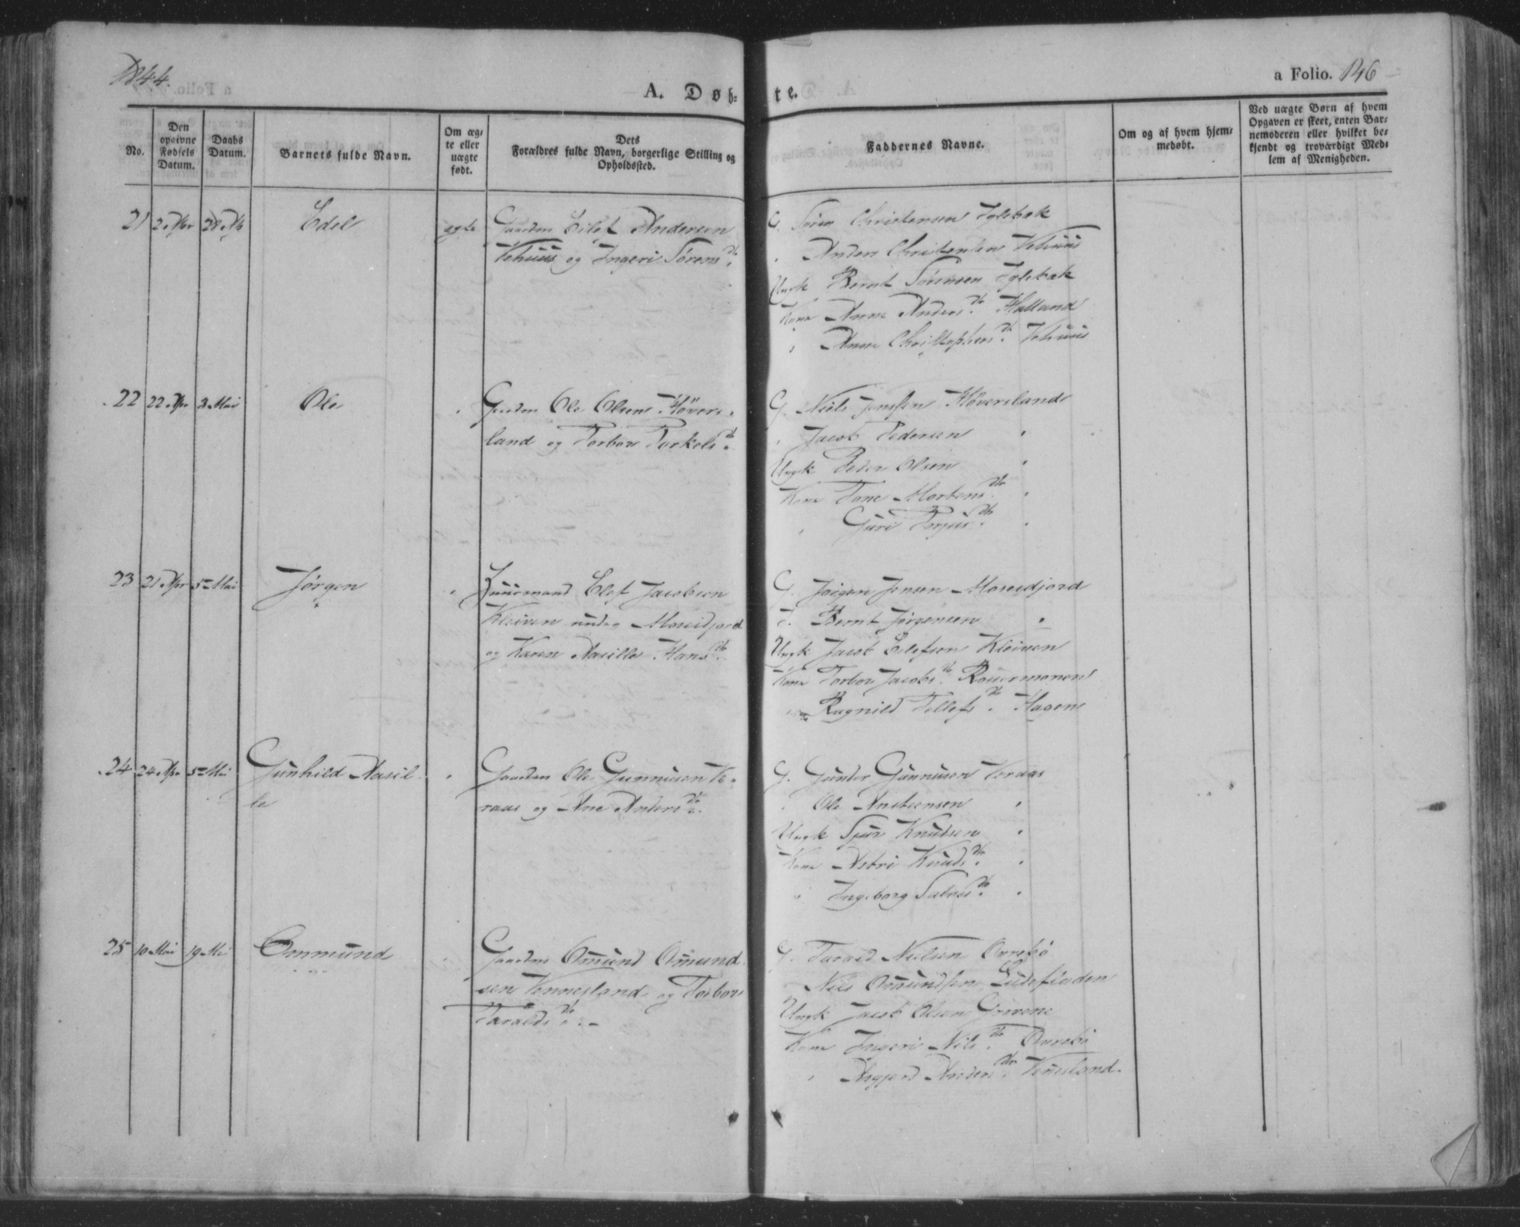 1844.
A. Døb-
te.
a Folio. 146
No.
Den opgivne Fødsels Datum.
Daabs Datum.
Barnets fulde Navn.
Om ægte eller uægte født.
Dets Forældres fulde Navn, borgerlige Stilling og Opholdssted.
Faddernes Navne.
Om og af hvem hjemmedøbt.
Ved uægte Børn af hvem Opgaven er skeet, enten Barnemoderen eller hvilket bekjendt og troværdigt Medlem af Menigheden.
21 2 Apr 28 Ap Edel ægte Gaardm Eilef Andersen
Vehuus og Ingeri Sørensdr.
G. Søren Christensen Iglebæk
" Anders Christensen Vehuus
Ungk Bernt Sørensen Iglebæk
Kone Anne Andersdr. Halland
" Anne Christophersdr. Vehuus
22 22 Apr 3 Mai Ole " Gaardm Ole Olsen Høvers-
land og Torbor Torkelsdr.
G. Niels Jensen Høversland
" Jacob Pedersen "
Ungk Peder Olsen "
Kone Tone Mortensdr. "
" Guri Terjusdr. "
23 21 Apr 5 Mai Jørgen " Huusmand Elef Jacobsen
Kleiven under Moseidjord
og Karen Aasille Hansdr.
G. Jørgen Jensen Moseidjord
" Bernt Jørgensen "
Ungk Jacob Elefsen Kleiven
Kone Torbor Jacobsdr.
" Ragnild Tellefsdr. Hagen
24 24 Apr 5 Mai Gunhild Aasil-
le
" Gaardm Ole Gunnusen Ve-
raas og Ane Andersdr.
G. Gunder Gunnusen Veraas
" Ole "
Ungk Sjur Knudsen "
Kone Asbri Knudsdr. "
" Ingeborg Salvesdr. "
25 10 Mai 19 Mai Ommund " Gaardm Omund Omund-
sen Vennesland og Torbor
Taraldsdr.
G. Tarald Nielsen Øvrebø
" Niels Omundsen
Ungk Jacob Olsen
Kone Ingeri Nilsdr. Øvrebø
" Andersdr. Venesland.